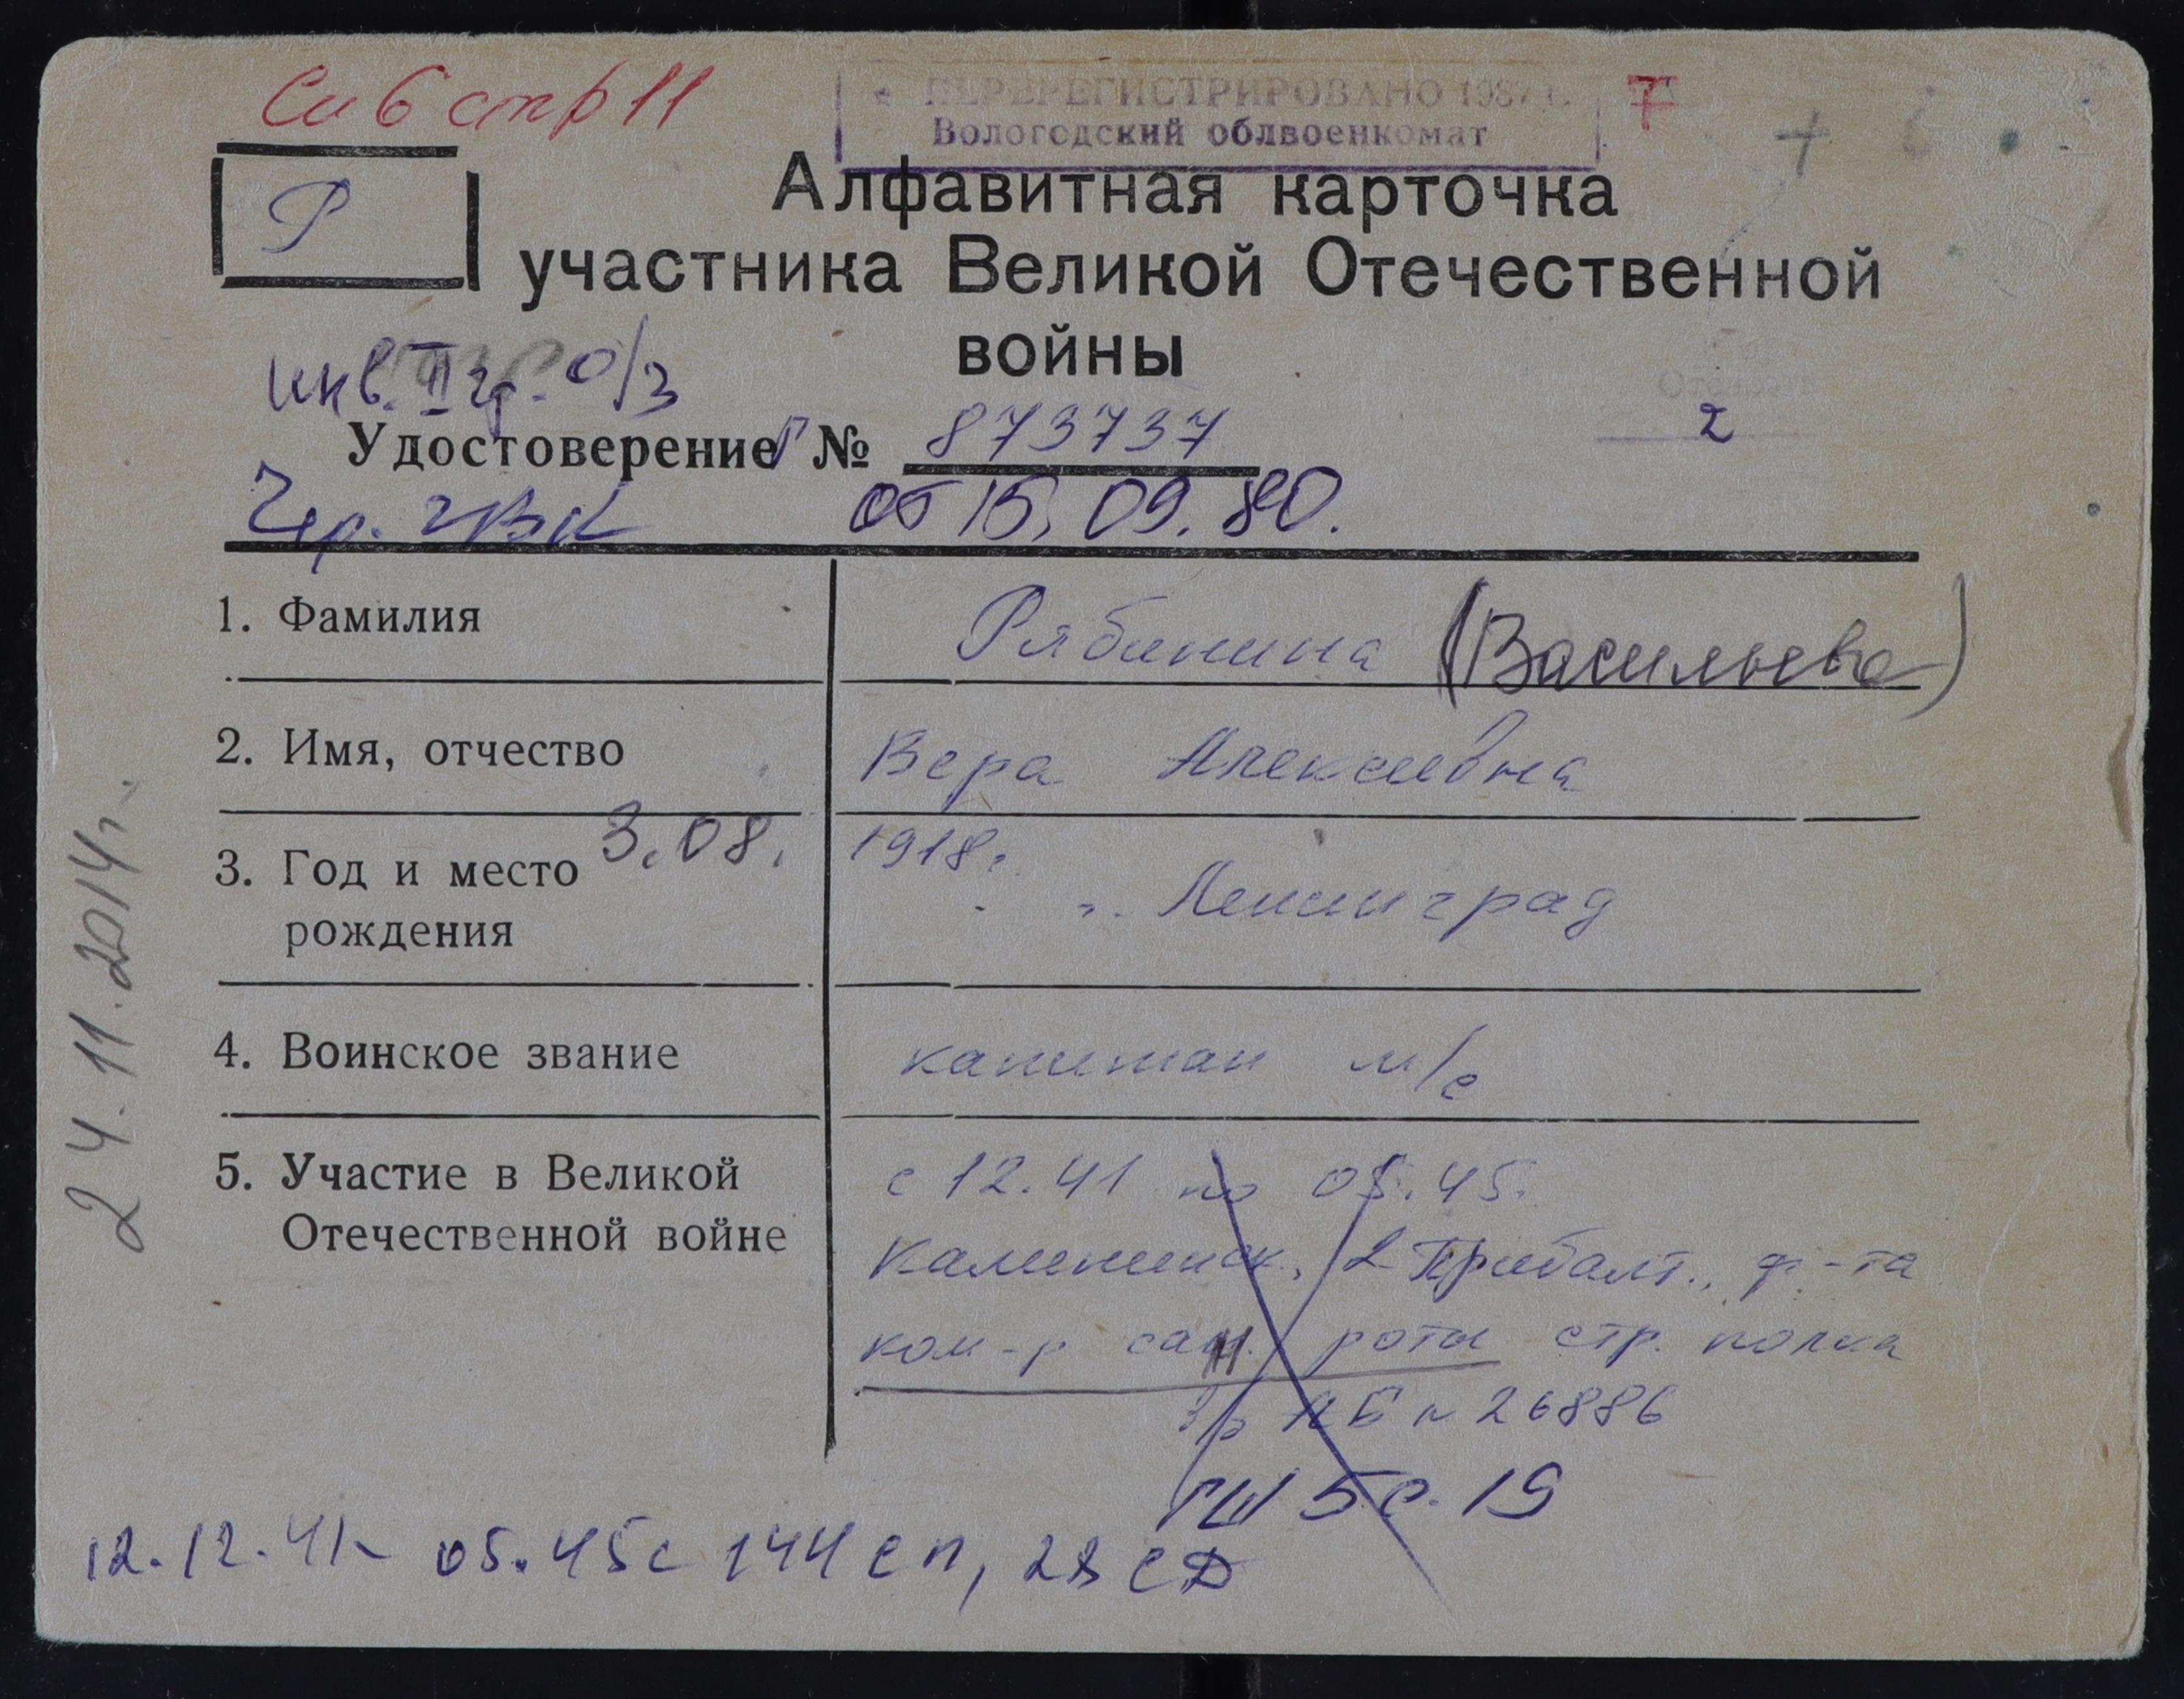 См 6 стр 11
ПЕРЕРЕГИСТРИРОВАНО 1987 г.
Вологодский облвоенкомат
7
Р
Алфавитная карточка
участника Великой Отечественной
войны
инв. II гр. о/з
2
Удостоверение Г № 873737
Чер. ГВК от 15.09.80.
1. Фамилия Рябинина (Васильева)
2. Имя, отчество Вера Алексеевна
3. Год и место рождения 3.08. 1918 г.
г. Ленинград
4. Воинское звание капитан м/с
5. Участие в Великой Отечественной войне с 12.41 по 05.45.
Калининск., 2 Прибалт., ф-та
ком-р сан. роты стр. полка
АБ № 26886
ГШ 5 с. 19
12.12.41 - 05.45 г 144 сп, 28 СД
24.11.2014г.